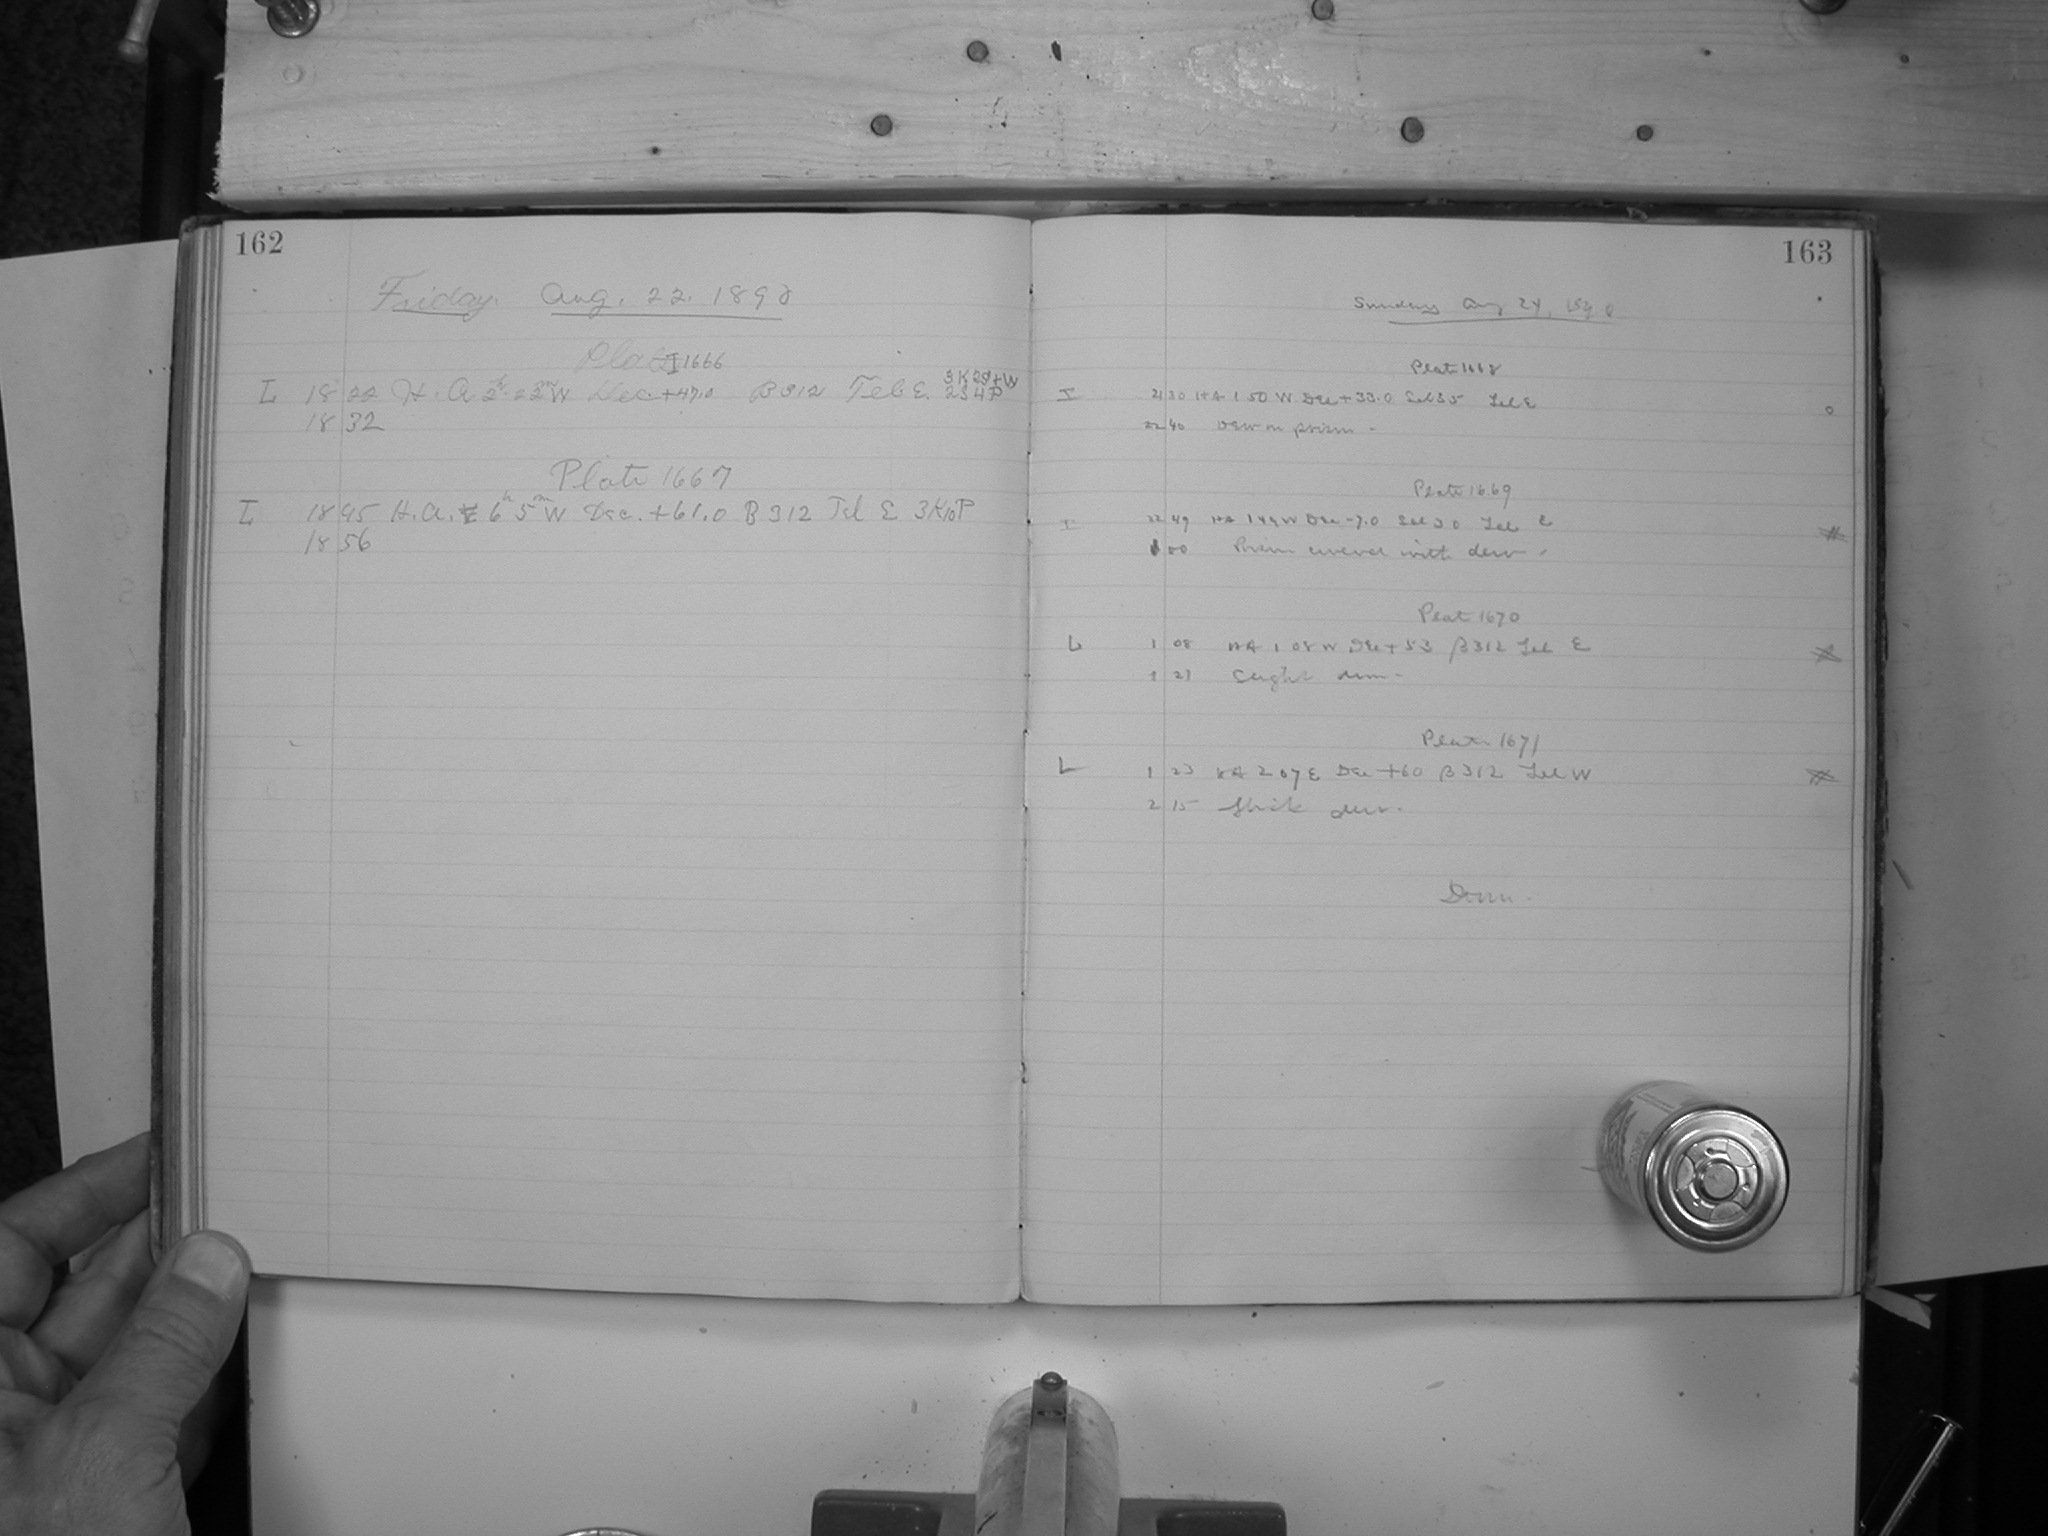 162
Friday. Aug. 22. 1890
Plate 1666
I 18 22 H.A. 2h 22m W Dec. +47.0 B 312 Tel E.
18 32
Plate 1667
I 18 45 H.A. 6h 5m W Dec. +61.0 B 312 Tel E 3K10P
18 56
163
Sunday Aug 24, 1890
Plate 1668
I 21 30 HA 1 50 W Dec +33.0 Sel 35 Tel E
22 40 Dew on prism -
Plate 1669
I 22 49 HA 1 49 W Dec -7.0 Sel 30 Tel E
00 Prism covered with dew -
Plate 1670
L 1 08 HA 1 08 W Dec +53 B 312 Tel E
1 21 Slight dew -
Plate 1671
L 1 23 HA 2 07 E Dec +60 B 312 Tel W
2 15 Thick dew -
Dew -